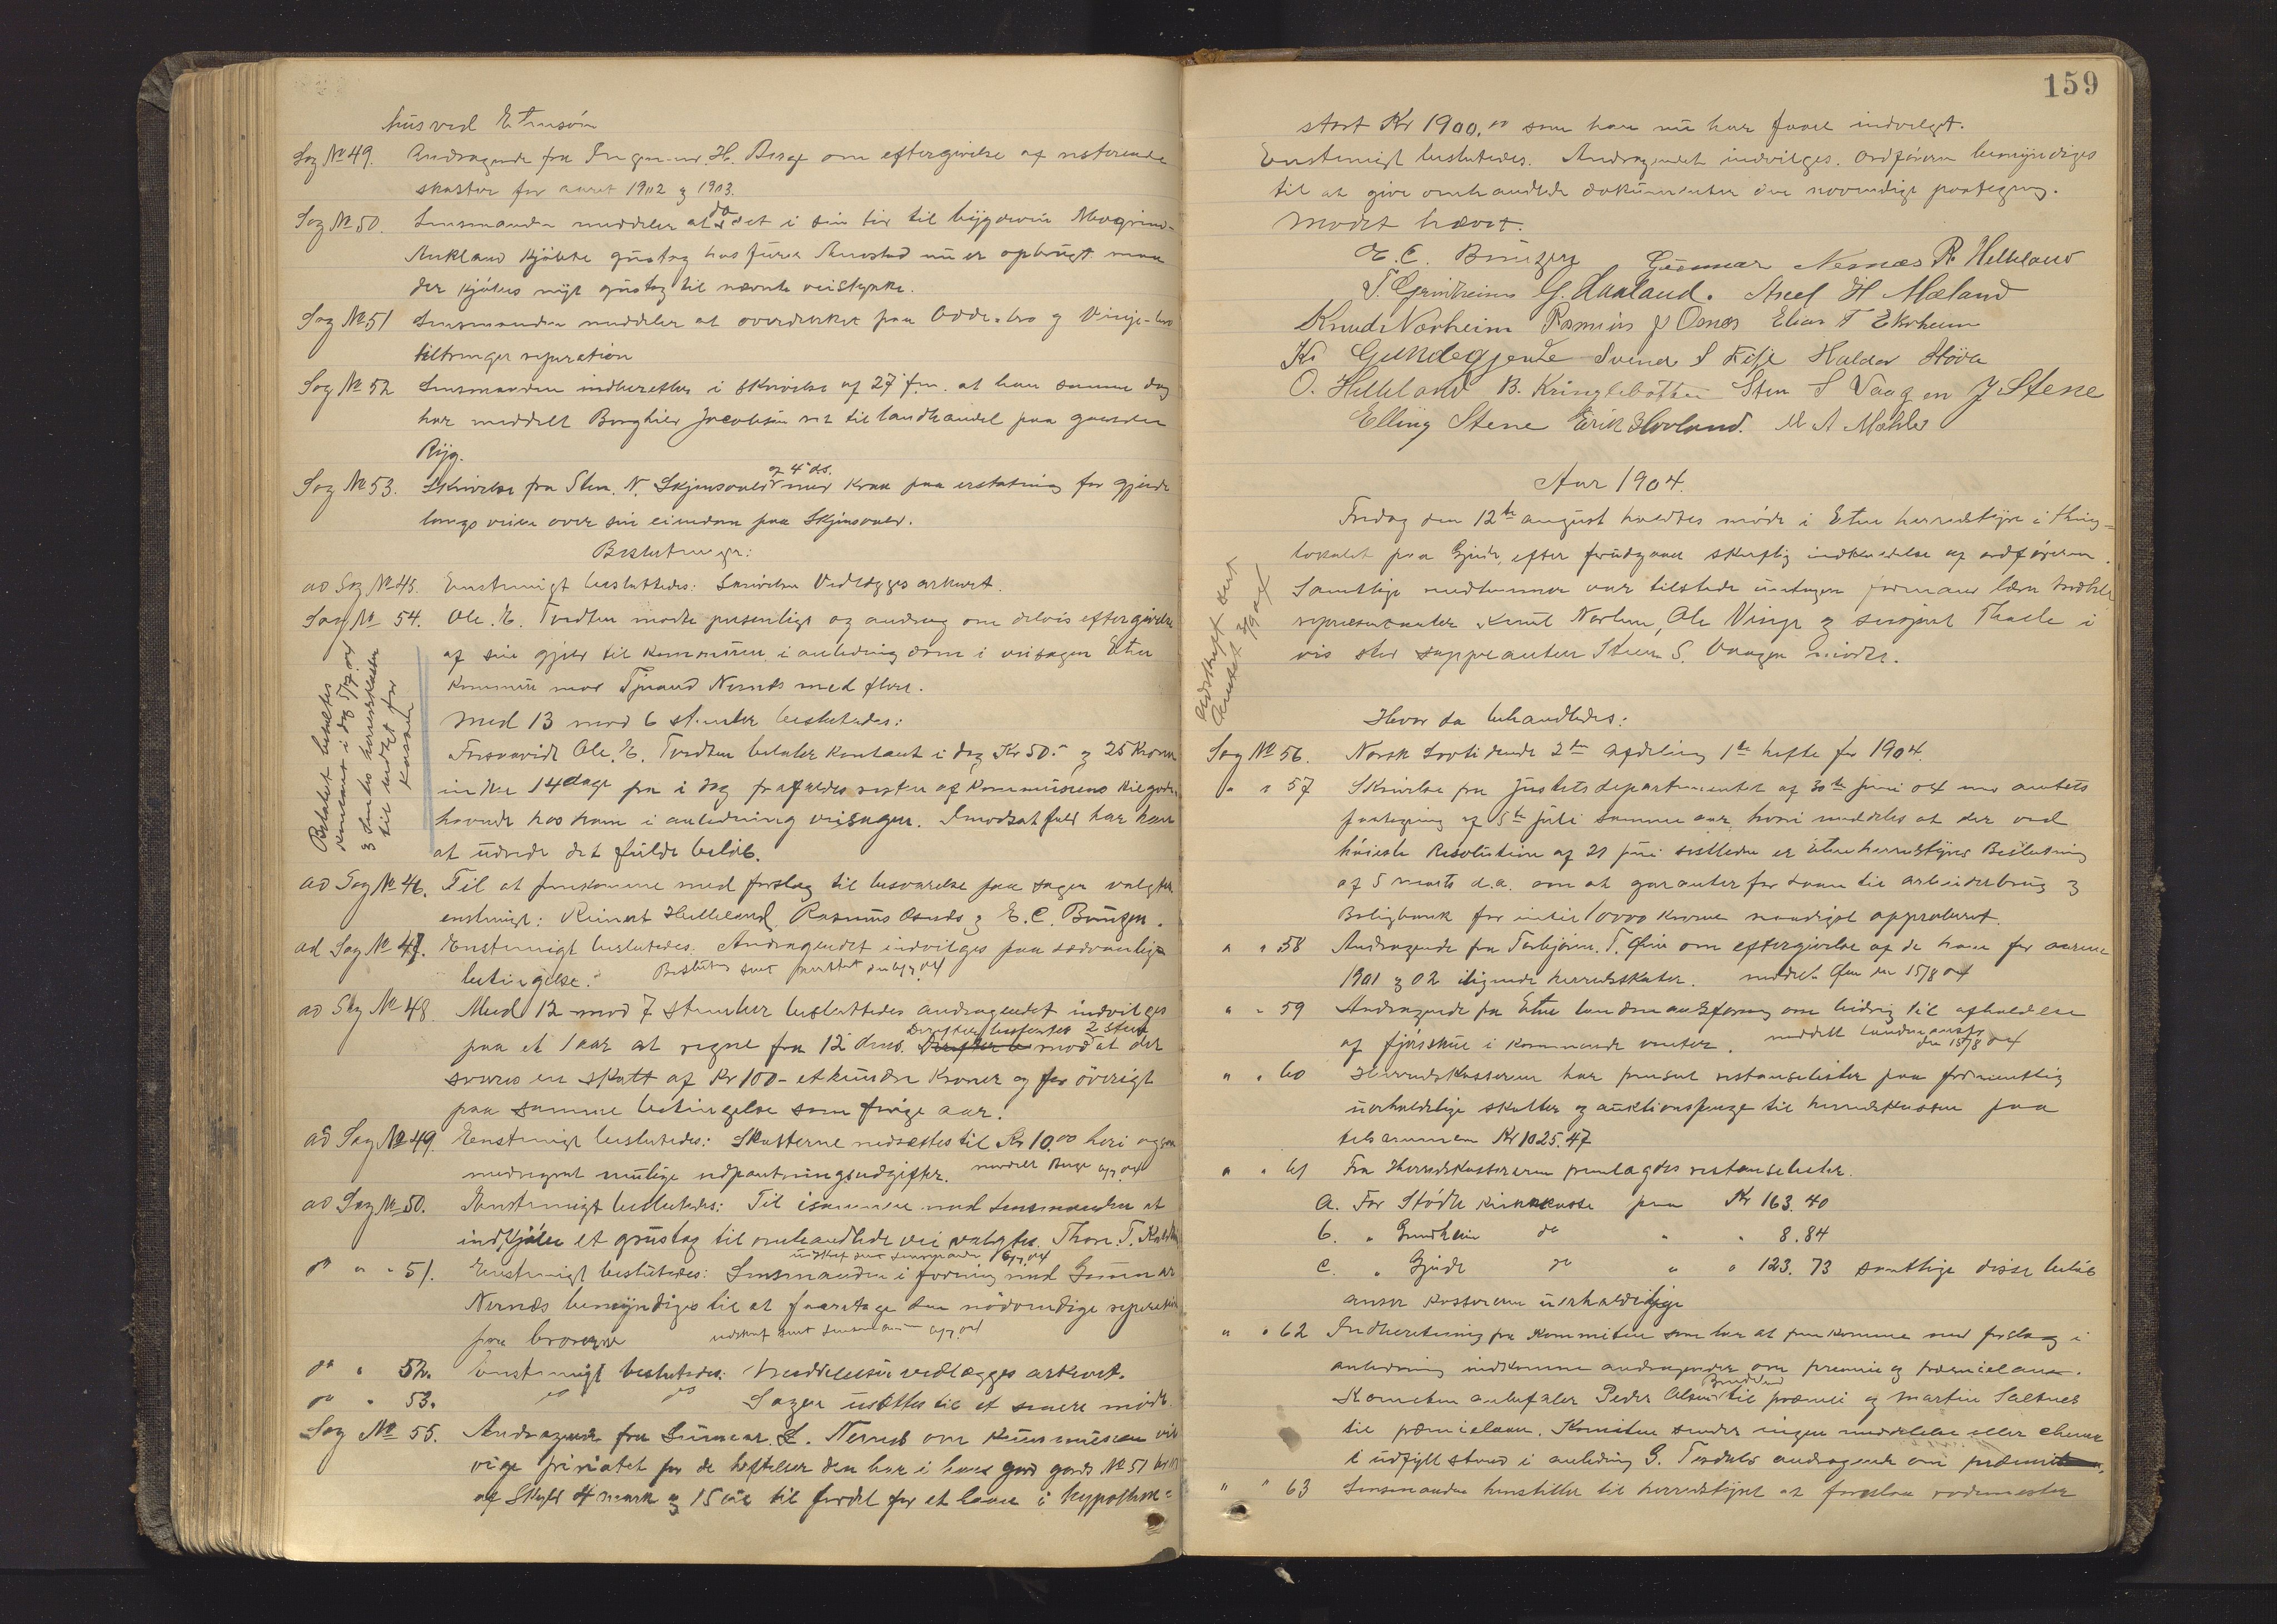 hus ved Etnesöen
Sag No 49. Andragende fra Ingeniør H. Berge om eftergivelse af resterende
skatter for aaret 1902 og 1903.
Sag No 50. Lensmanden meddeler at da det i sin tid til bygdevei
Aukland kjöbte grustag hos nu er opbrugt maa
der kjöbes nyt grustag til nævnte veistykke.
Sag No 51 Lensmanden meddeler at overdækket paa Odde-bro og Vinje-bro
tiltrenger reparation
Sag No 52 Lensmanden indberetter i skrivelse af 27 f.m. at han samme dag
har meddelt Borghild Jacobsen ret til landhandel paa gaarden
Ryg.
Sag No 53. Skrivelse fra Sten N. Skjensvold af 4 ds. med krav paa erstatning for gjerde
langs veien over sin eiendom paa Skjensvold.
Beslutninger:
ad Sag No 45. Enstemigt besluttedes: Skrivelsen Vedlægges arkivet.
Sag No 54. Ole E. Tvedten mødte personligt og androg om delvis eftergivelse
af sin gjeld til kommunen i anledning dom i veisagen Etne
kommune mod Tjerand Nernes med flere.
Med 13 mod 6 stemmer besluttedes:
Forsaavidt Ole E. Tvedten betaler kontant i dag Kr 50.- og 25 Kroner
inden 14 dage fra i dag frafaldes resten af kommunens tilgode-
havende hos ham i anledning veisagen. I modsat fald har han
at udrede det fulde beløb.
Betalet beløbet
kontant i dag 5/7.04
til herredskasserer
ad Sag No 46. Til at fremkomme med forslag til besvarelse paa sagen valgtes
enstemigt: Reinert Helleland, Rasmus Osnes og E. C. Bunger.
ad Sag No 47. Enstemigt besluttedes. Andragendet indvilges paa sædvanlige
betingelse.
ad Sag No 48 Med 12 mod 7 stemmer besluttedes andragendet indvilges
paa et 1 aar at regne fra 12 dms. mod at der
svares en skatt af Kr 100- et hundre Kroner og for övrigt
paa samme betingelse som forige aar.
ad Sag No 49. Eenstemigt besluttedes: Skatterne nedsættes til Kr 10.00 heri ogsaa
medregnet mulige udpantningsudgifter. meddelt Berge 6/7.04
ad Sag No 50. Enstemigt besluttedes: Til isammen med Lensmanden at
indkjøbe et grustag til omhandlede vei valgtes Thore T.
do " " 51. Enstemigt besluttedes: Lensmanden i forening med Gunnar
Nernes bemyndiges til at foaretage den nödvendige reperation
paa broerne
do " 52. Enstemigt besluttedes: Meddelelsen vedlægges arkivet.
do " 53. do do Sagen udsættes til et senere møde
Sag No 55. Andragende fra Gunnar L. Nernes om kommunen vil
vige prioritet for de heftelser den har i hans gaard gards No 51
af Skyld 4 mark og 15 øre til fordel for et laan i hypothek-
159
stort Kr 1900.00 som han nu har faaet indvilget.
Enstemigt besluttedes. Andragendet indvilges. Ordføreren bemyndiges
til at give omhandlede dokumenter den nøvendige paategning.
Mødet hævet.
E. C. Bunger Gunnar Nernæs R. Helleland
T. Grindheim G. Haaland. Axel H Mæland
Knud Norheim Rasmus J Osnes Elias T Ekrheim
Kr Gundegjerde Svend S Fitje Haldor Höva
O. Helleland B. Kringlebotten Sten S Vaagen J Stene
Elling Stene Erik Hovland. M A Mæhle
Aar 1904.
Fredag den 12te august holdtes møde i Etne herredstyre i thing-
lokalet paa Gjerde, efter forudgaaet skriftlig indkaldelse af ordføreren.
Samtlige medlemmer var tilstede undtagen
repræsentanter Knut Norheim, Ole Vinje og Thaele i
vis sted suppleanten Steen S. Vaagen mødte.
udskrift sent
Amtet 3/9 04
Hvor da behandledes:
Sag No 56. Norsk Lovtidende 2den afdeling 1te hefte for 1904.
" " 57 Skrivelse fra Justitsdepartementet af 30te juni 04 med amtets
paategning af 5te juli samme aar, hvori meddeles at der ved
höieste Resolution af 21 juni sistleden er Etne herredstyres Beslutning
af 5 marts d.a. om at garantere for laan til arbeiderbrug og
Boligbank for indtil 10000 kroner naadigst approberet.
" " 58 Andragende fra Torbjørn T. Øin om eftergivelse af de ham for aarene
1901 og 02 ilignede herredsskatter. meddelt Øin den 15/8 04
" " 59 Andragende fra Etne landmandsforening om bidrag til afholdelse
af fjøsskue i kommende vinter. meddelt landmandsf. den 15/8 04
" " 60 Herredskassereren har fremsat restanselister paa formentlig
uerholdelige skatter og auktionspenge til herredskassen paa
tilsammen Kr 1025.47
" " 61 Fra Herredskassereren fremlagdes restanselister.
a. For Stödle kirkekasse paa Kr 163.40
b. " Grindheim do " " 8.84
c. " Gjerde do " " 123.73 samtlige disse beløb
anser kassereren uerholdelige
" " 62 Indberetning fra Komiteen som har at fremkomme med forslag i
anledning indkomne andragender om premie og præmielaan.
Komiteen anbefaler Peder Olsen til præmie og Martin Saltnes
til præmielaan. Komiteen sender ingen meddelelse eller
i udfyldt stand i anledning G. Tesdals andragende om præmie
" " 63 Lensmanden henstiller til herredstyret at foreslaa rodemester